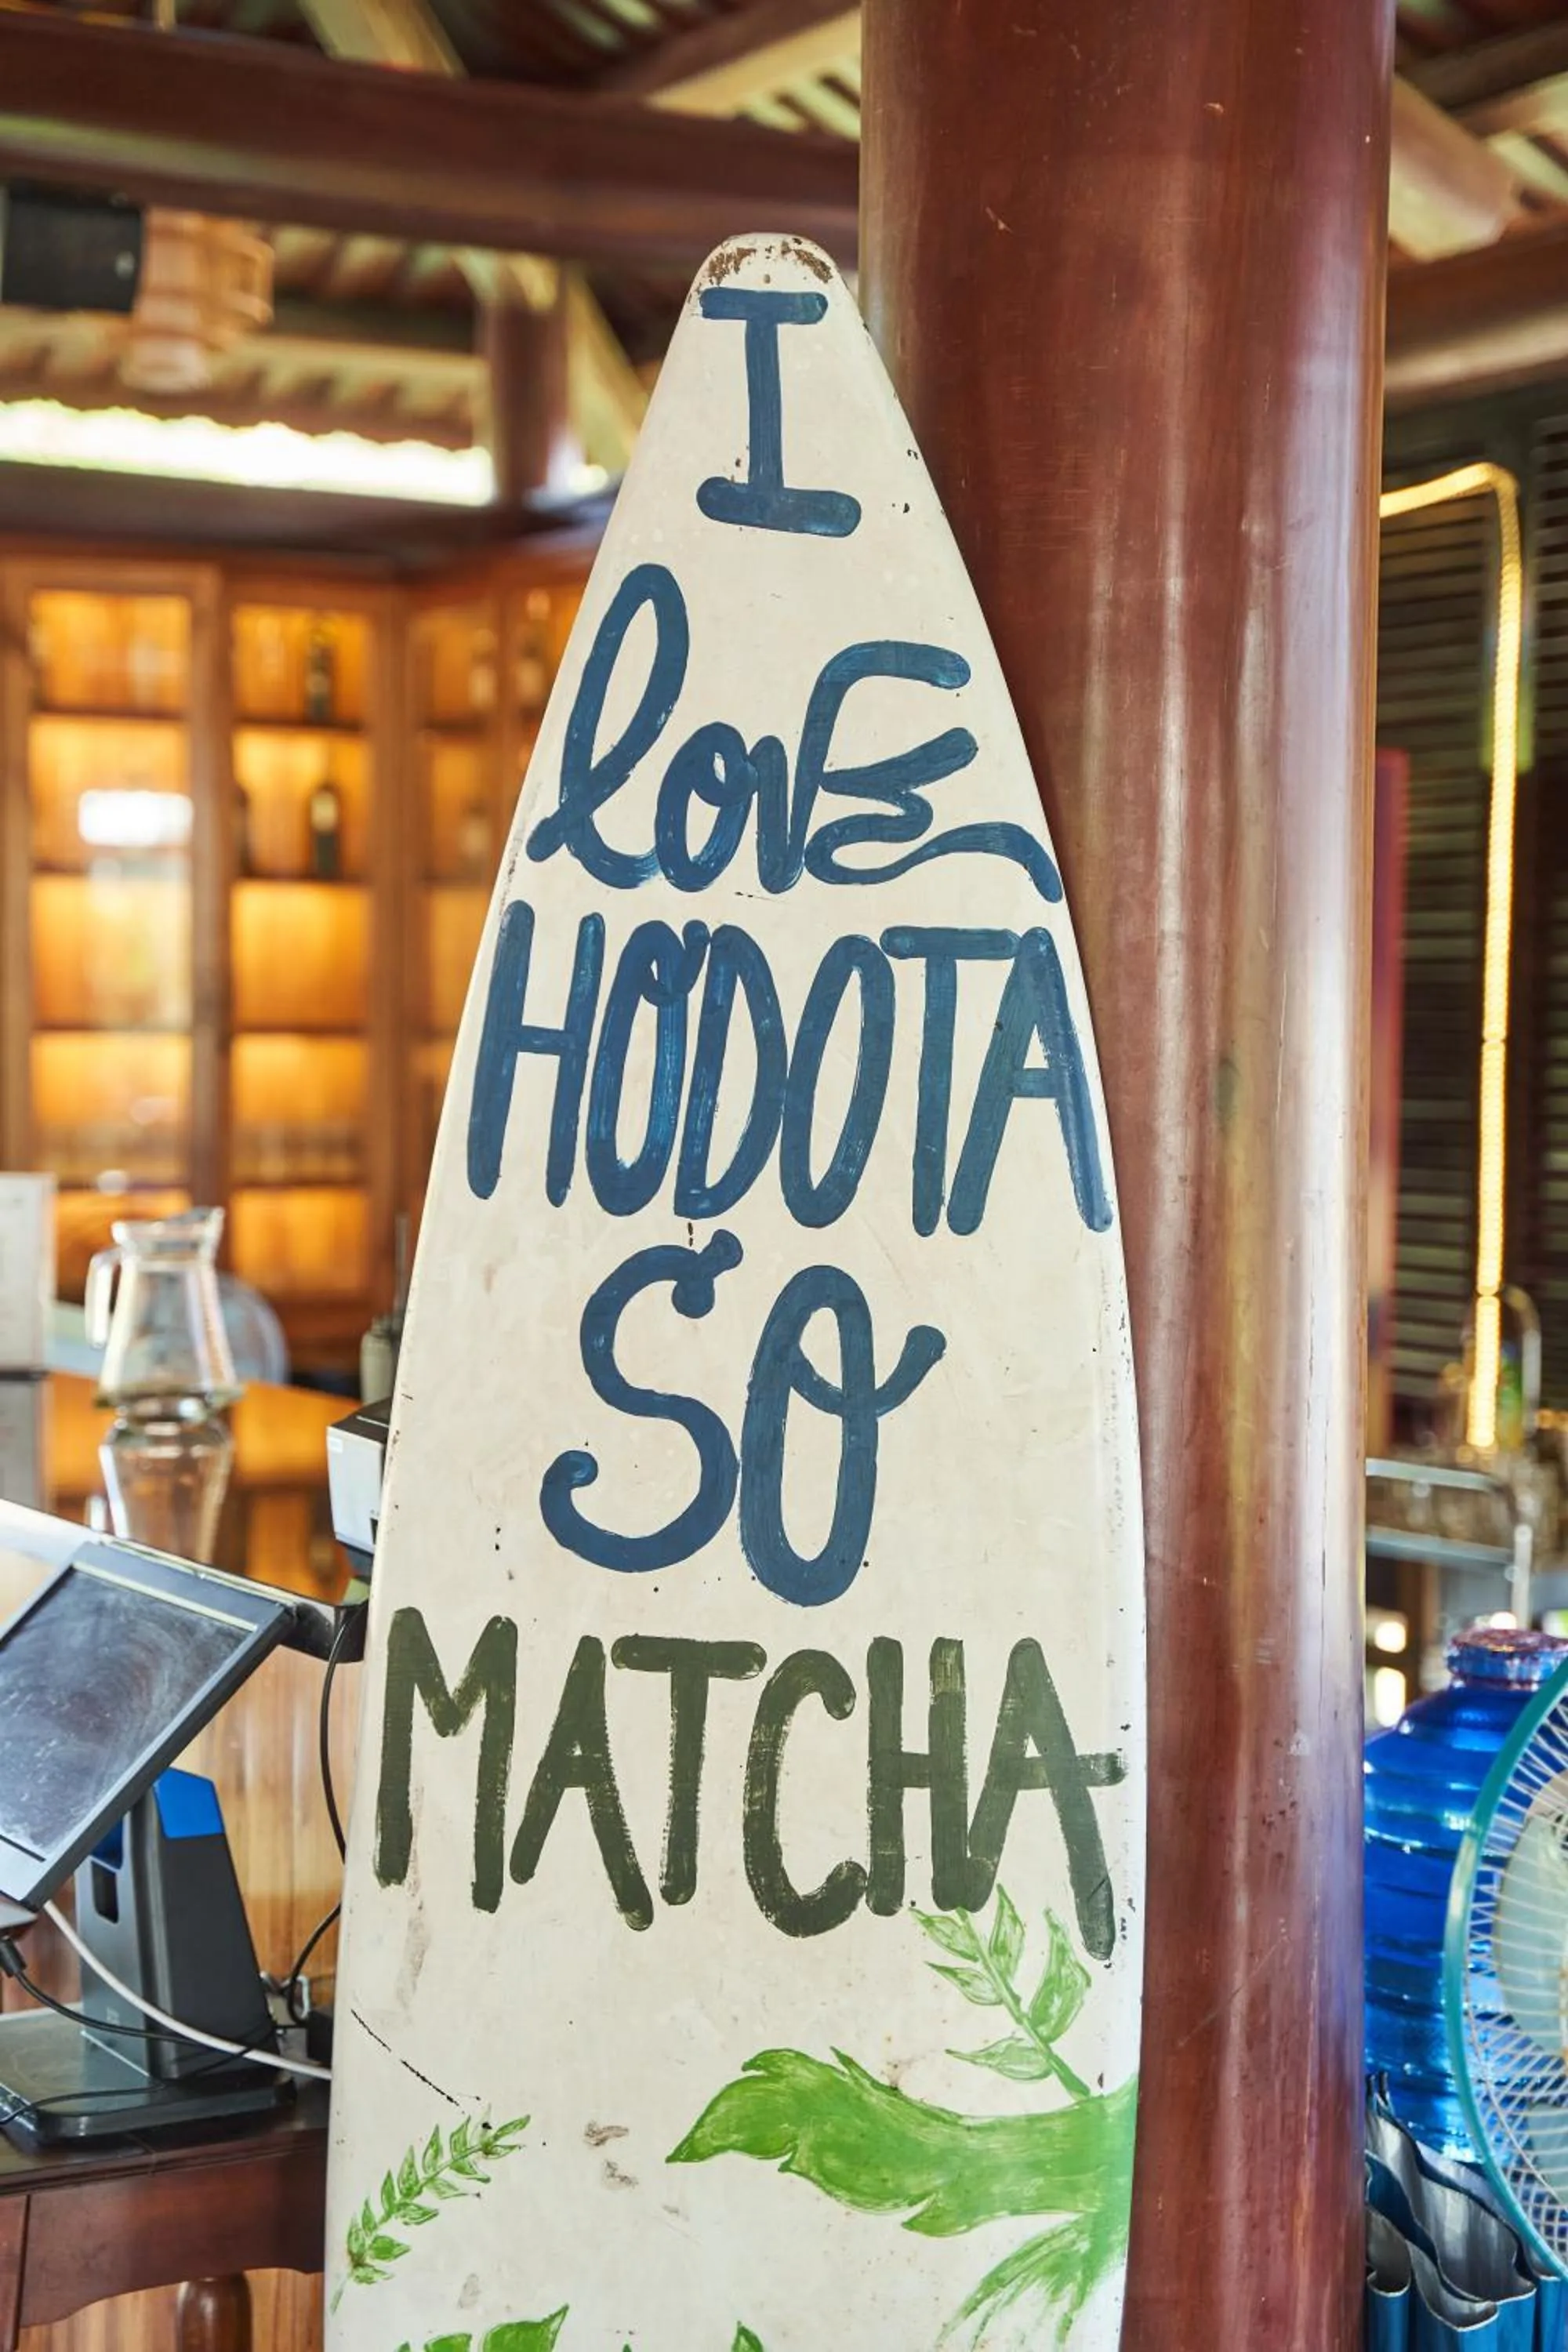 I
lovE
HODOTA
SO
MATCHA